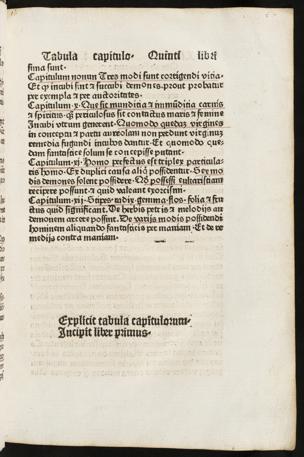 Tabula capitulo⁊ Quinti libri
sima sunt.
Capitulum nonum Tres modi sunt corrigendi vitia.
Et ꝙ incubi sint ⁊ succubi demones. prout probatur
per exempla ⁊ per auctoritates.
Capitulum .x. Que sit mundicia ⁊ immūdicia carnis
⁊ spiritus. ⁊ periculosus sit contactus maris ⁊ femine
Incubi vtrum generent. Quomodo quedaȝ virgines
in conceptu ⁊ partu aureolam non perdunt virginuȝ
remedia fugandi incubos dantur. Et quomodo que-
dam fantastice solum se concepisse putant.
Capitulum .xj. Homo perfectus est triplex particula-
ris homo. Ex duplici causa aliq̄ possidentur. Sex mo
dis demones solent possidere. Nō possessi eukaristiam
recipere possunt. ⁊ quid valeant exorcismi.
Capitulum .xij. Stipes. radix. gemma. flos. folia ⁊ fru
ctus quid significant. De herbis petris ⁊ melodiis an
demonem arcere possint. De variis modis possidendi
hominem aliquando fantasticis per maniam. Et de re
mediis contra maniam.
Explicit tabula capitulorum.
Incipit liber primus.